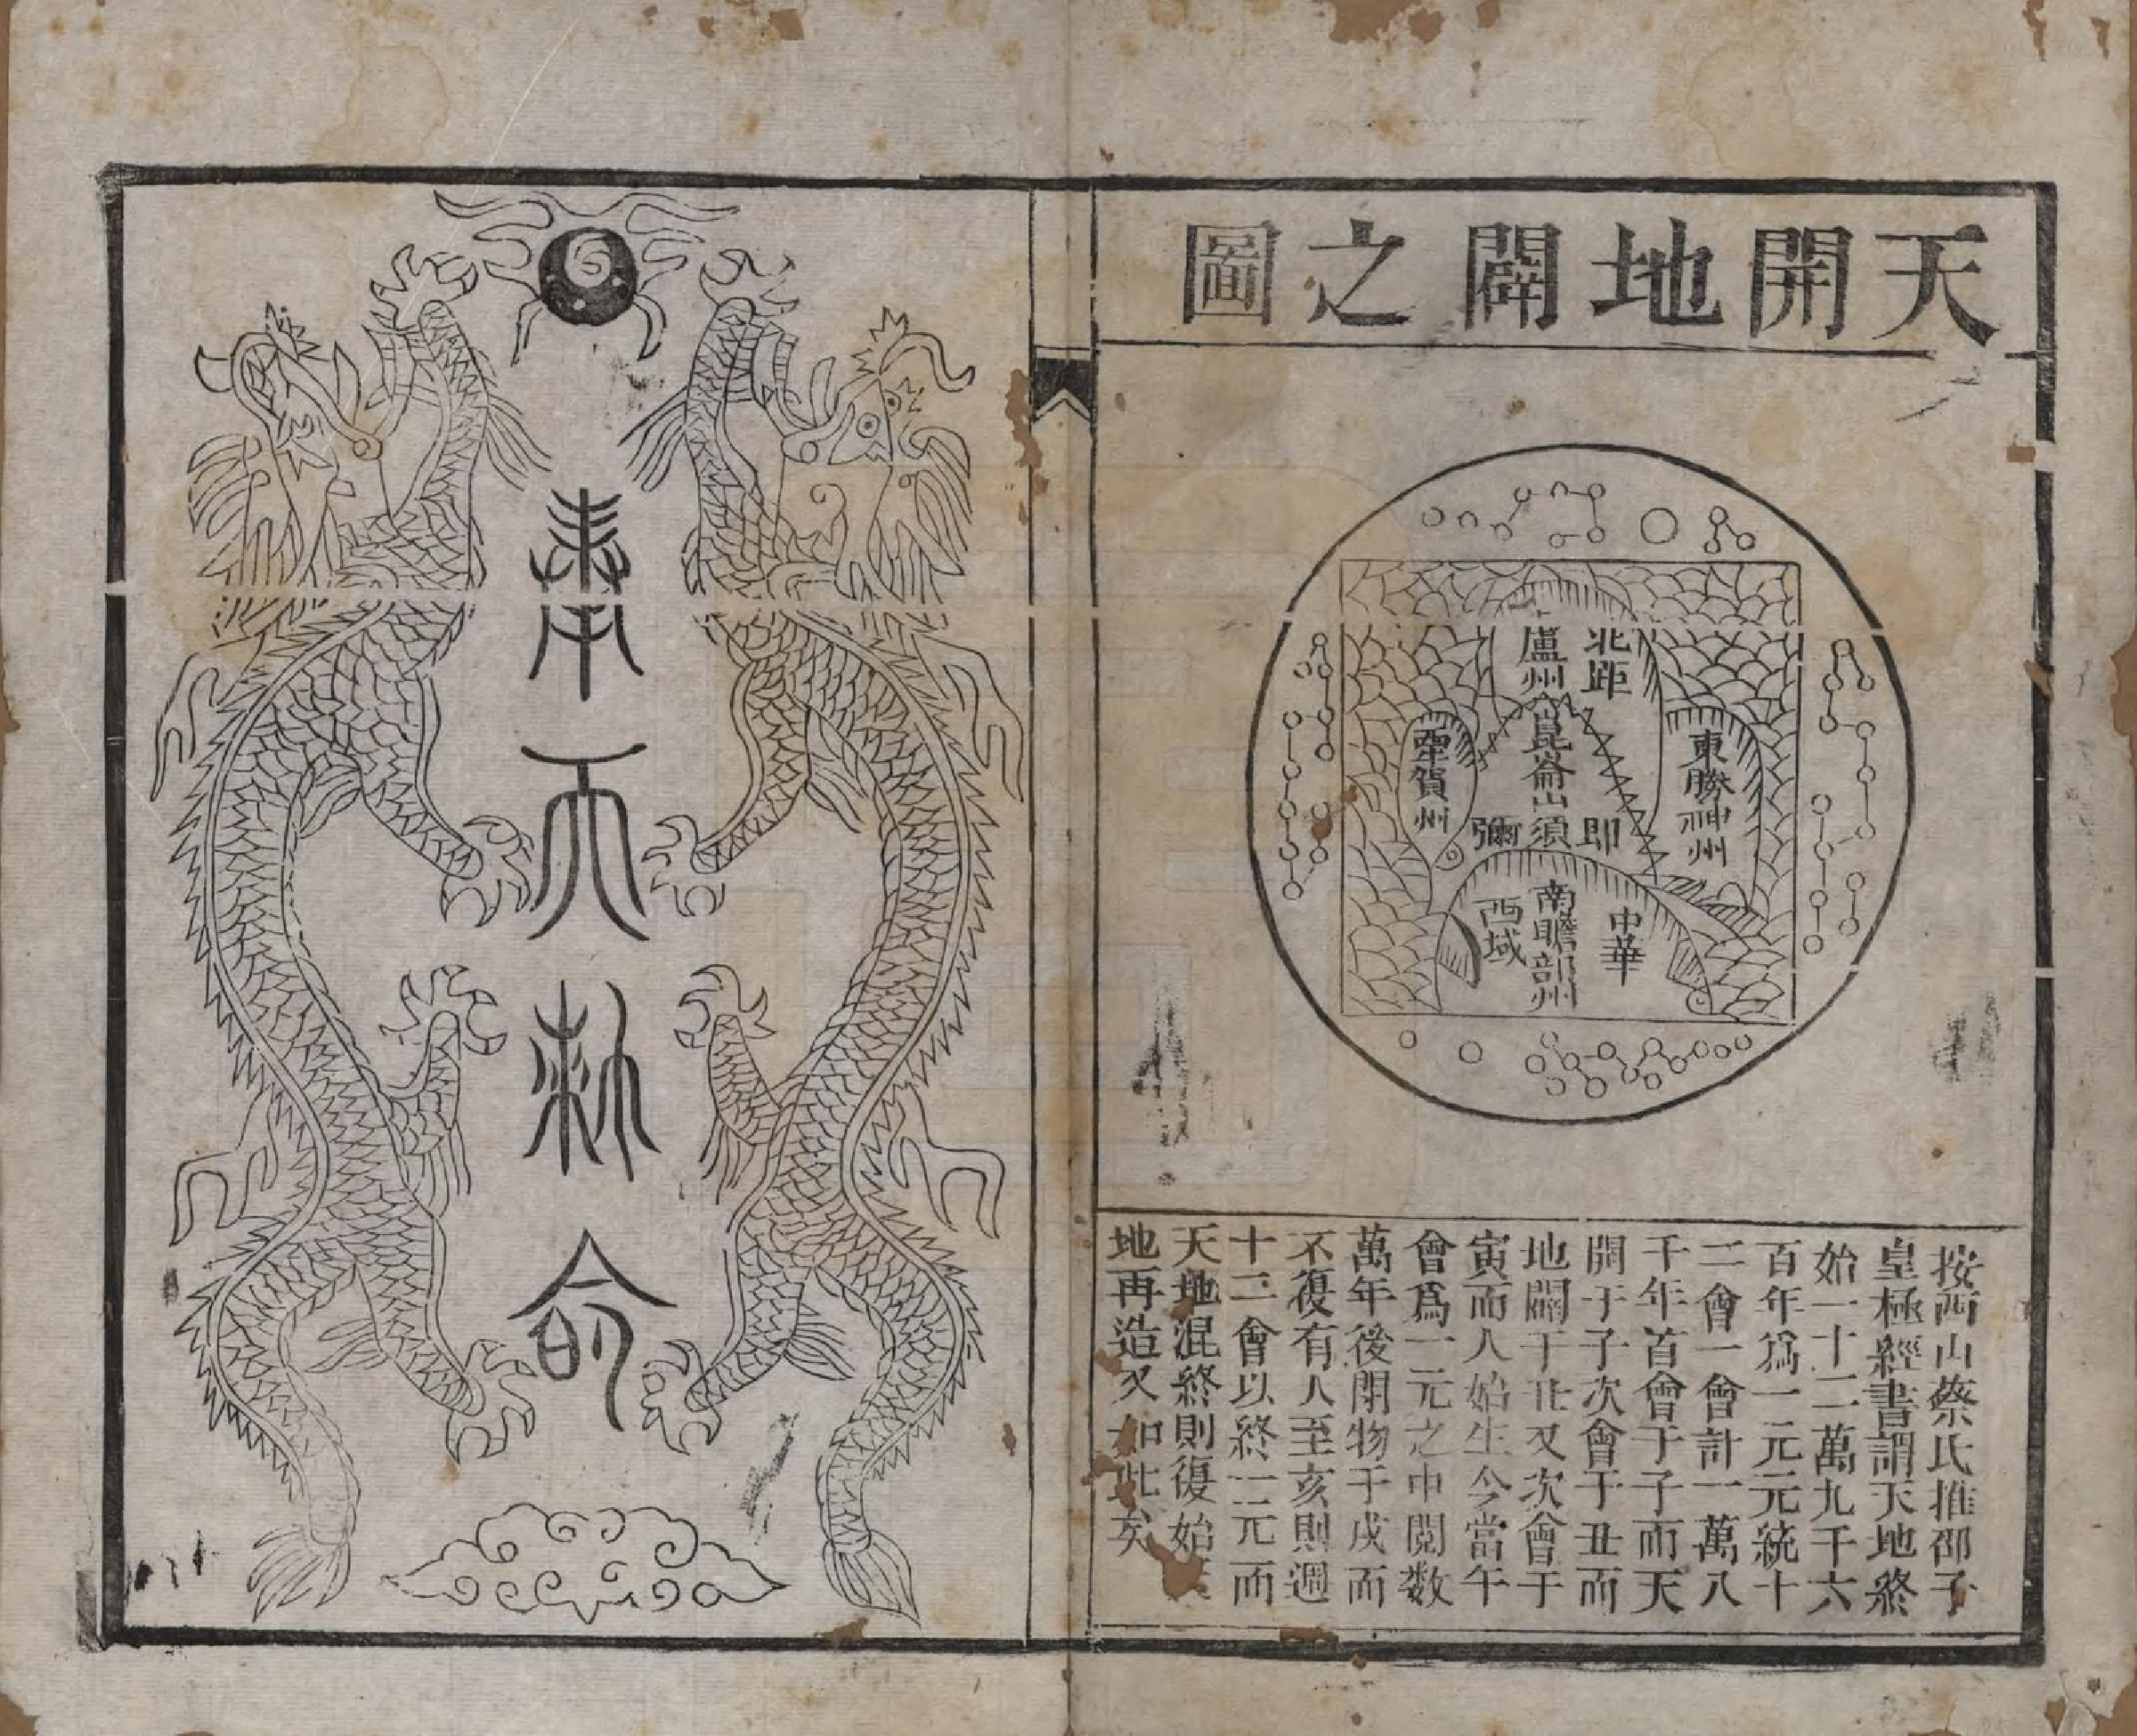 天開地闢之圖
北距
盧州
崑崙山須
即
彌
東勝神州
牽賀州
中華
南瞻部州
西域
按西山蔡氏推邵子
皇極經書謂天地終
始一十二萬九千六
百年爲一元元統十
二會一會計一萬八
千年首會于子而天
開于子次會于丑而
地闢于丑又次會于
寅而人始生今當午
會爲一元之中閱数
萬年後閉物于戌而
不復有人至亥則週
十二會以終一元而
天地混終則復始
地再造又如此矣
奉天勅命